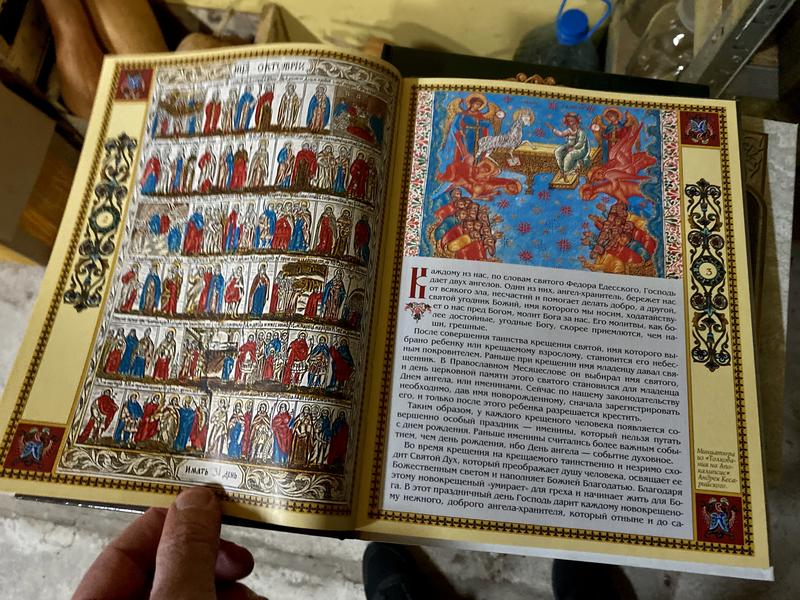 ИМАТЬ 31 ДЕНЬ
Каждому из нас, по словам святого Федора Едесского, Господь
дает двух ангелов. Один из них, ангел-хранитель, бережет нас
от всякого зла, несчастий и помогает делать добро, а другой,
святой угодник Божий, имя которого мы носим, ходатайству-
ет о нас пред Богом, молит Бога за нас. Его молитвы, как бо-
лее достойные, угодные Богу, скорее приемлются, чем на-
ши, грешные.
После совершения таинства крещения святой, имя которого вы-
брано ребенку или крещаемому взрослому, становится его небес-
ным покровителем. Раньше при крещении имя младенцу давал свя-
щенник. В Православном Месяцеслове он выбирал имя святого,
и день церковной памяти этого святого становился для младенца
Днем ангела, или именинами. Сейчас по нашему законодательству
необходимо, дав имя новорожденному, сначала зарегистрировать
его, и только после этого ребенка разрешается крестить.
Таким образом, у каждого крещеного человека появляется со-
вершенно особый праздник — именины, который нельзя путать
с днем рождения. Раньше именины считались более важным собы-
тием, чем день рождения, ибо День ангела — событие духовное.
Во время крещения на крещаемого таинственно и незримо схо-
дит Святой Дух, который преображает душу человека, освящает ее
Божественным светом и наполняет Божией Благодатью. Благодаря
этому новокрещеный «умирает» для греха и начинает жить для Бо-
га. В этот праздничный день Господь дарит каждому новокрещено-
му нежного, доброго ангела-хранителя, который отныне и до са-
3
Миниатюра
из «Толкова-
ния на Апо-
калипсис»
Андрея Кеса-
рийского.